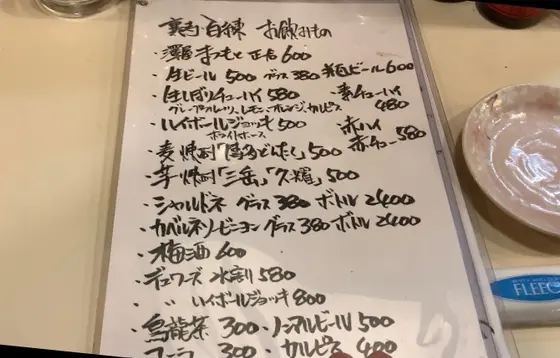 裏• 白練 お飲みもの
・灘 まつもと 正宗 600
・生ビール 500 グラス 380 瓶ビール 600
・生しぼりチューハイ 580 ・素チューハイ 480
グレープフルーツ、レモン、オレンジ、カルピス
・ハイボールジョッキ 500 赤ハイ
ホワイトホース 赤チュー 580
・麦焼酎「博多どんたく」500
・芋焼酎「三岳」「久耀」500
・シャルドネ グラス 380 ボトル 2400
・カベルネソービニヨン グラス 380 ボトル 2400
・梅酒 600
・デュワーズ 水割 580
・〃 ハイボールジョッキ 800
・烏龍茶 300 ・ノンアルビール 500
コーラ 300 ・カルピス 400
FLEEC